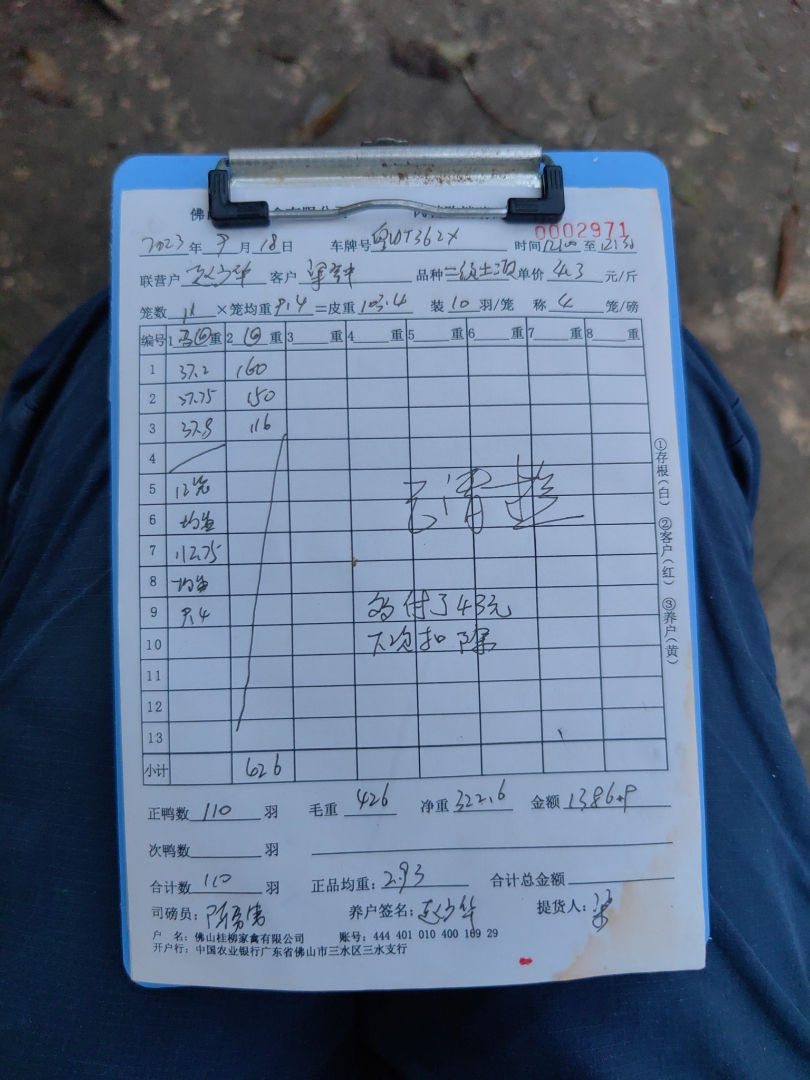 佛山
0002971
2023年9月18日 车牌号 时间12:00至12:30
联营户 客户 品种 单价4.3元/斤
笼数11×笼均重9.4=皮重103.4 装10羽/笼 称4笼/磅
编号 1 重 2 重 3 重 4 重 5 重 6 重 7 重 8 重
1 37.2 160
2 37.75 150
3 37.8 116
4
5 12笼
6 均重
7 112.75
8 均重
9 9.4
10
11
12
13
小计 426
已清
付了43元
下次扣除
①存根(白) ②客户(红) ③养户(黄)
正鸭数110羽 毛重426 净重322.6 金额1386.9
次鸭数 羽
合计数110羽 正品均重:2.93 合计总金额
司磅员: 养户签名: 提货人:
户 名:佛山桂柳家禽有限公司 账号:444 401 010 400 169 29
开户行:中国农业银行广东省佛山市三水区三水支行